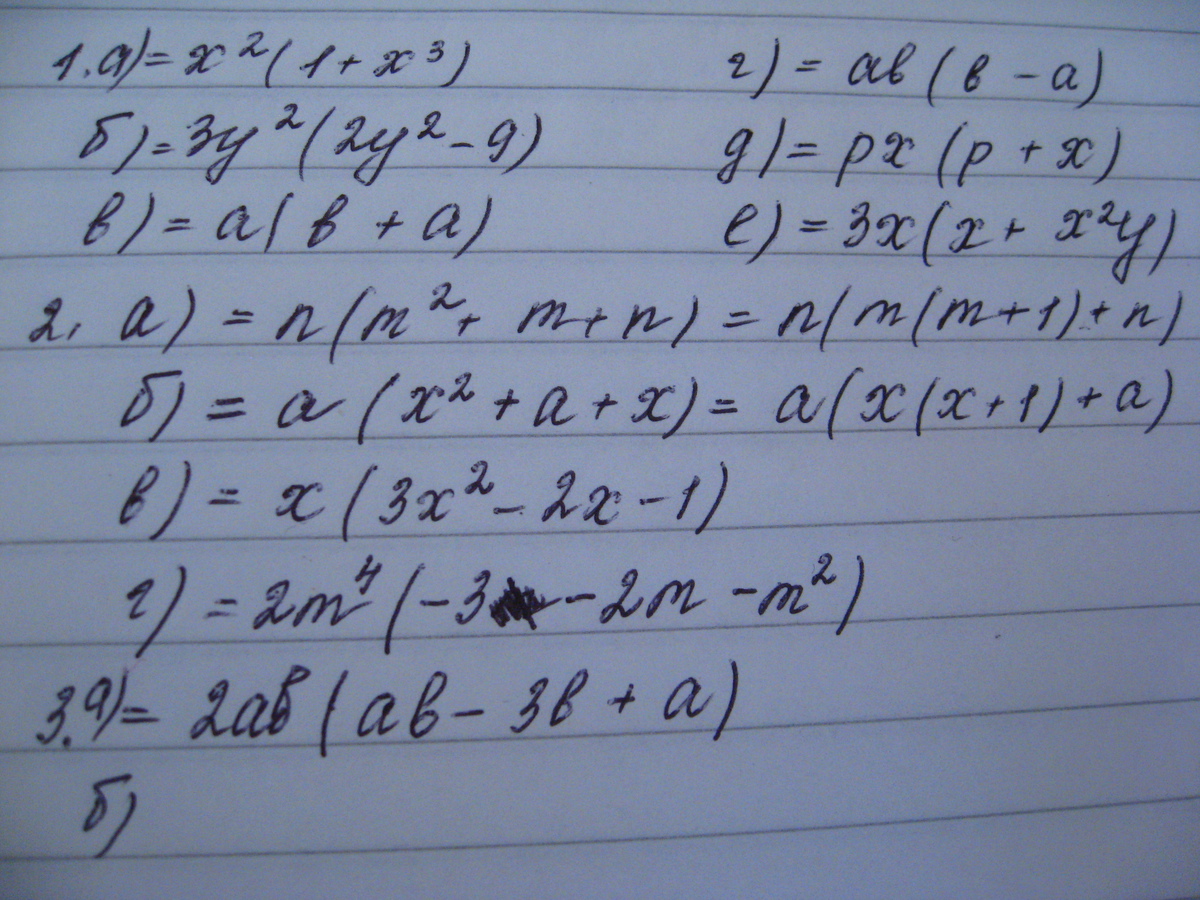 1. а) = x²(1 + x³) г) = ab(b - a)
б) = 3y²(2y² - 9) д) = px(p + x)
в) = a(b + a) е) = 3x(x + x²y)
2. а) = n(m² + m + n) = n(m(m + 1) + n)
б) = a(x² + a + x) = a(x(x + 1) + a)
в) = x(3x² - 2x - 1)
г) = 2m⁴(-3 - 2m - m²)
3. а) = 2ab(ab - 3b + a)
б)